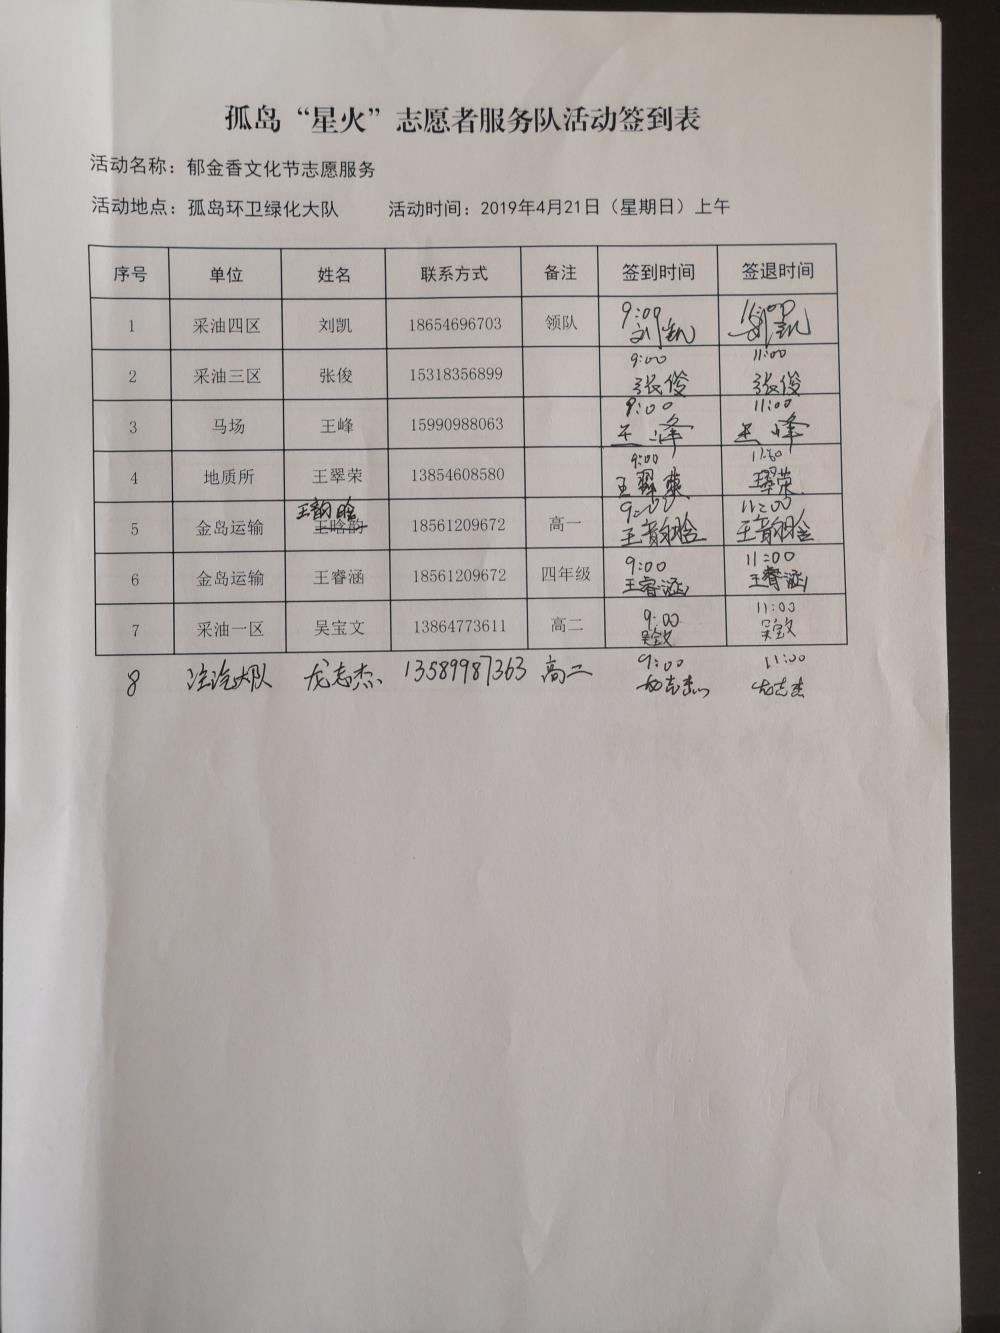 孤岛“星火”志愿者服务队活动签到表
活动名称：郁金香文化节志愿服务
活动地点：孤岛环卫绿化大队 活动时间：2019年4月21日（星期日）上午
序号 单位 姓名 联系方式 备注 签到时间 签退时间
1 采油四区 刘凯 18654696703 领队 9:00 刘凯 11:00 刘凯
2 采油三区 张俊 15318356899 9:00 张俊 11:00 张俊
3 马场 王峰 15990988063 9:00 王峰 11:00 王峰
4 地质所 王翠荣 13854608580 9:00 王翠荣 11:00 王翠荣
王韵晗
5 金岛运输 王晗韵 18561209672 高一 9:00 王韵晗 11:00 王韵晗
6 金岛运输 王睿涵 18561209672 四年级 9:00 王睿涵 11:00 王睿涵
7 采油一区 吴宝文 13864773611 高二 9:00 吴宝文 11:00 吴宝文
8 注汽大队 龙志杰 13589987363 高二 9:00 龙志杰 11:00 龙志杰